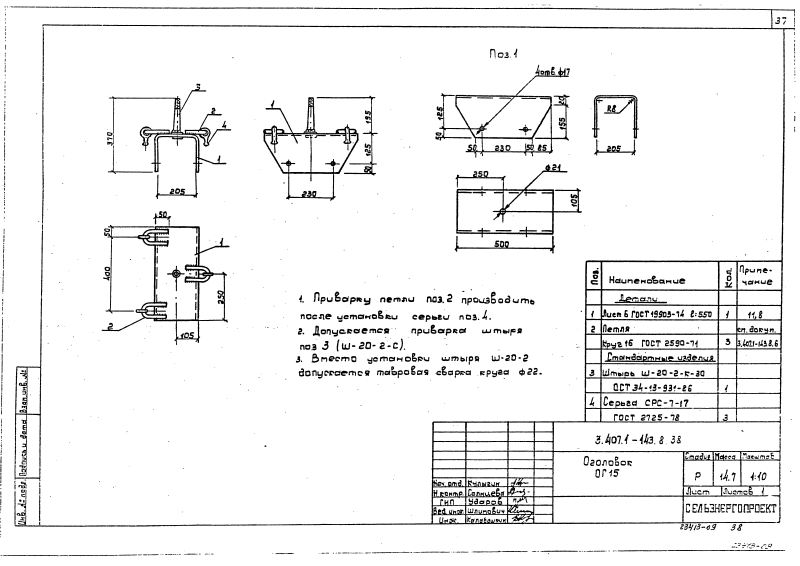 37
Поз.1
4отв. ф17
3
2
4
1
370
205
1
195
125
50
230
125
50
50
230
50
85
20
155
R8
205
250
ф21
105
500
50
50
400
1
250
2
105
1. Приварку петли поз.2 производить
после установки серьги поз.4.
2. Допускается приварка штыря
поз 3 (Ш-20-2-С).
3. Вместо установки штыря Ш-20-2
допускается тавровая сварка круга ф22.
Поз. Наименование Кол. Приме-чание
Детали
1 Лист 6 ГОСТ 19903-74 ℓ=550 1 11,8
2 Петля см. докум.
Круг 16 ГОСТ 2590-71 3 3.407.1-143.8.6
Стандартные изделия
3 Штырь Ш-20-2-К-30
ОСТ 34-13-931-86 1
4 Серьга СРС-7-17
ГОСТ 2725-78 3
3.407.1-143.8.38
Оголовок
ОГ15
Стадия Масса Масштаб
Р 14.7 1:10
Лист Листов 1
СЕЛЬЭНЕРГОПРОЕКТ
Нач. отд. Кулыгин
Н.контр. Солнцева
ГИП Ударов
Вед. инж. Шлипович
Инж.
Инв. № подл. Подпись и дата Взам. инв. №
23413-09 38
23413-09